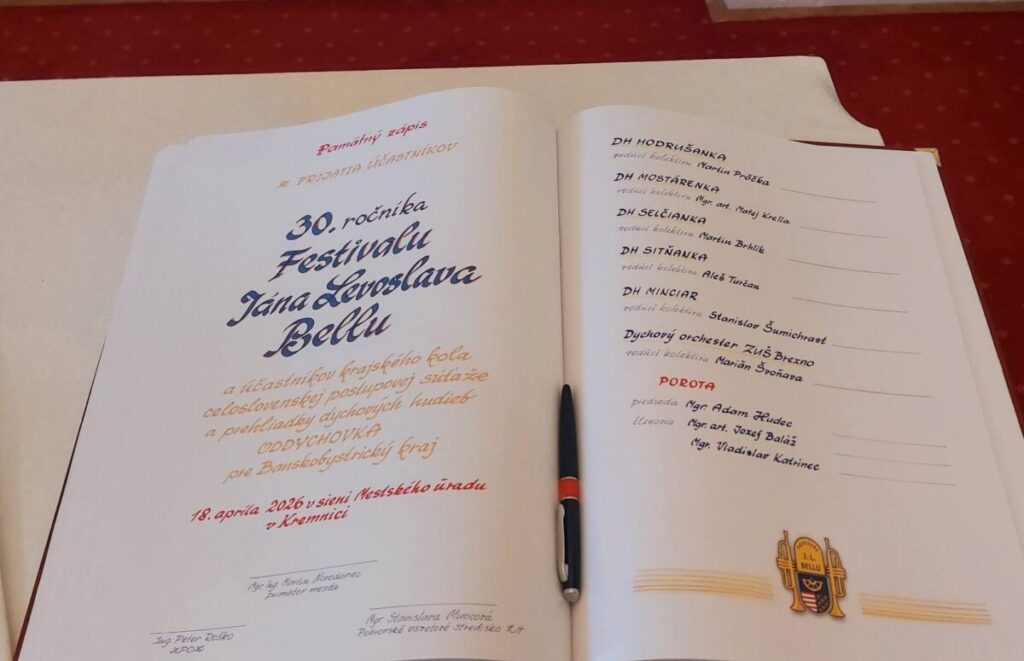 Pamätný zápis
z PRIJATIA ÚČASTNÍKOV
30. ročníka
Festivalu
Jána Levoslava
Bellu
a účastníkov krajského kola
celoslovenskej postupovej súťaže
a prehliadky dychových hudieb
ODDYCHOVKA
pre Banskobystrický kraj
18. apríla 2026 v sieni Mestského úradu
v Kremnici
Mgr. Ing. Martin
primátor mesta
Mgr. Stanislava
osvetové stredisko ZH
Ing. Peter Roško
DH HODRUŠANKA
vedúci kolektívu Martin Prôčka
DH MOSTÁRENKA
vedúci kolektívu Mgr. art. Matej Krella
DH SELČIANKA
vedúci kolektívu Martin Brhlík
DH SITŇANKA
vedúci kolektívu Aleš Turčan
DH MINCIAR
vedúci kolektívu Stanislav Šumichrast
Dychový orchester ZUŠ Brezno
vedúci kolektívu Marián Švoňava
POROTA
predseda Mgr. Adam Hudec
členovia Mgr. art. Jozef Baláž
Mgr. Vladislav Katrinec
J. L.
BELLU